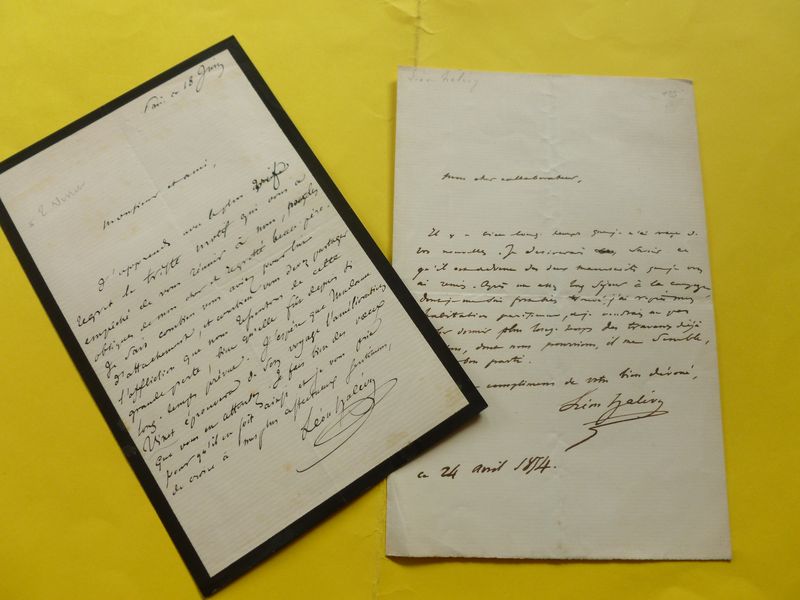 Paris ce 18 Juin
Monsieur et ami,
J'apprends avec le plus vif
regret le triste motif qui vous a
empêché de vous réunir à nous,
obsèques de mon cher et regretté beau-père.
Je sais combien vous aviez pour lui
d'attachement et combien vous devez partager
l'affliction que nous éprouvons de cette
grande perte, bien qu'elle fût depuis si
long-temps prévue. J'espère que Madame
Vinet éprouvera de son voyage l'amélioration
que vous en attendez. Je fais bien des vœux
pour qu'il en soit ainsi et je vous prie
de croire à mes plus affectueux sentimens.
Léon Halévy
Léon Halévy
Mon cher collaborateur,
Il y a bien long-temps que je n'ai reçu de
vos nouvelles. Je désirerais savoir ce
qu'il est advenu des deux manuscrits que je vous
ai remis. Après un assez long séjour à la campagne
j'ai repris mon
habitation parisienne, et je voudrais ne pas
dormir plus long-temps des travaux déjà
dont nous pourrions, il me semble,
bon parti.
complimens de votre bien dévoué,
Léon Halévy
ce 24 avril 1854.